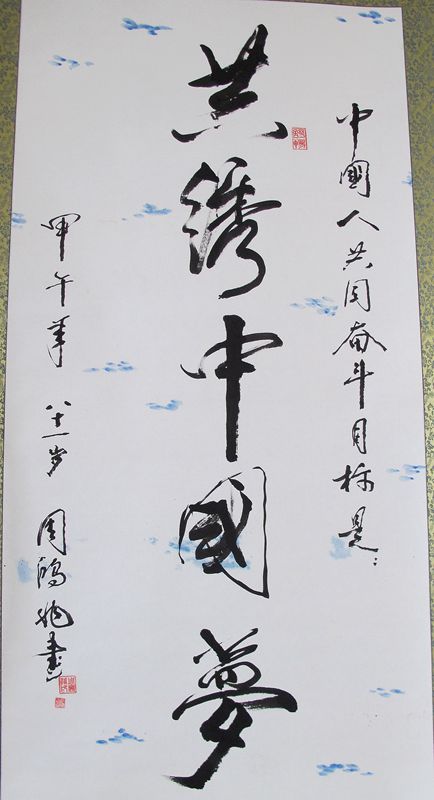 中國人共同奋斗目标是：
共绣中國夢
甲午年 八十一岁 周鴻兆書